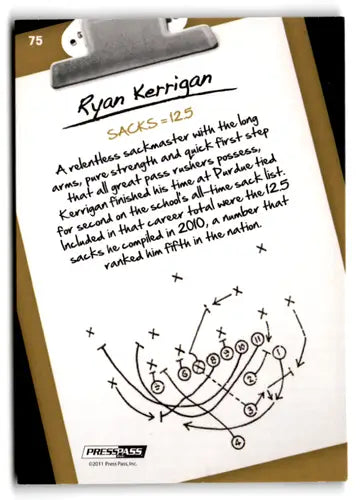 75
Ryan Kerrigan
SACKS = 12.5
A relentless sackmaster with the long
arms, pure strength and quick first step
that all great pass rushers possess,
Kerrigan finished his time at Purdue tied
for second on the school's all-time sack list.
Included in that career total were the 12.5
sacks he compiled in 2010, a number that
ranked him fifth in the nation.
X
X X
X X X X X
11
10
9
8
7
6
X
1
2
3
4
PRESSPASS
©2011 Press Pass, Inc.